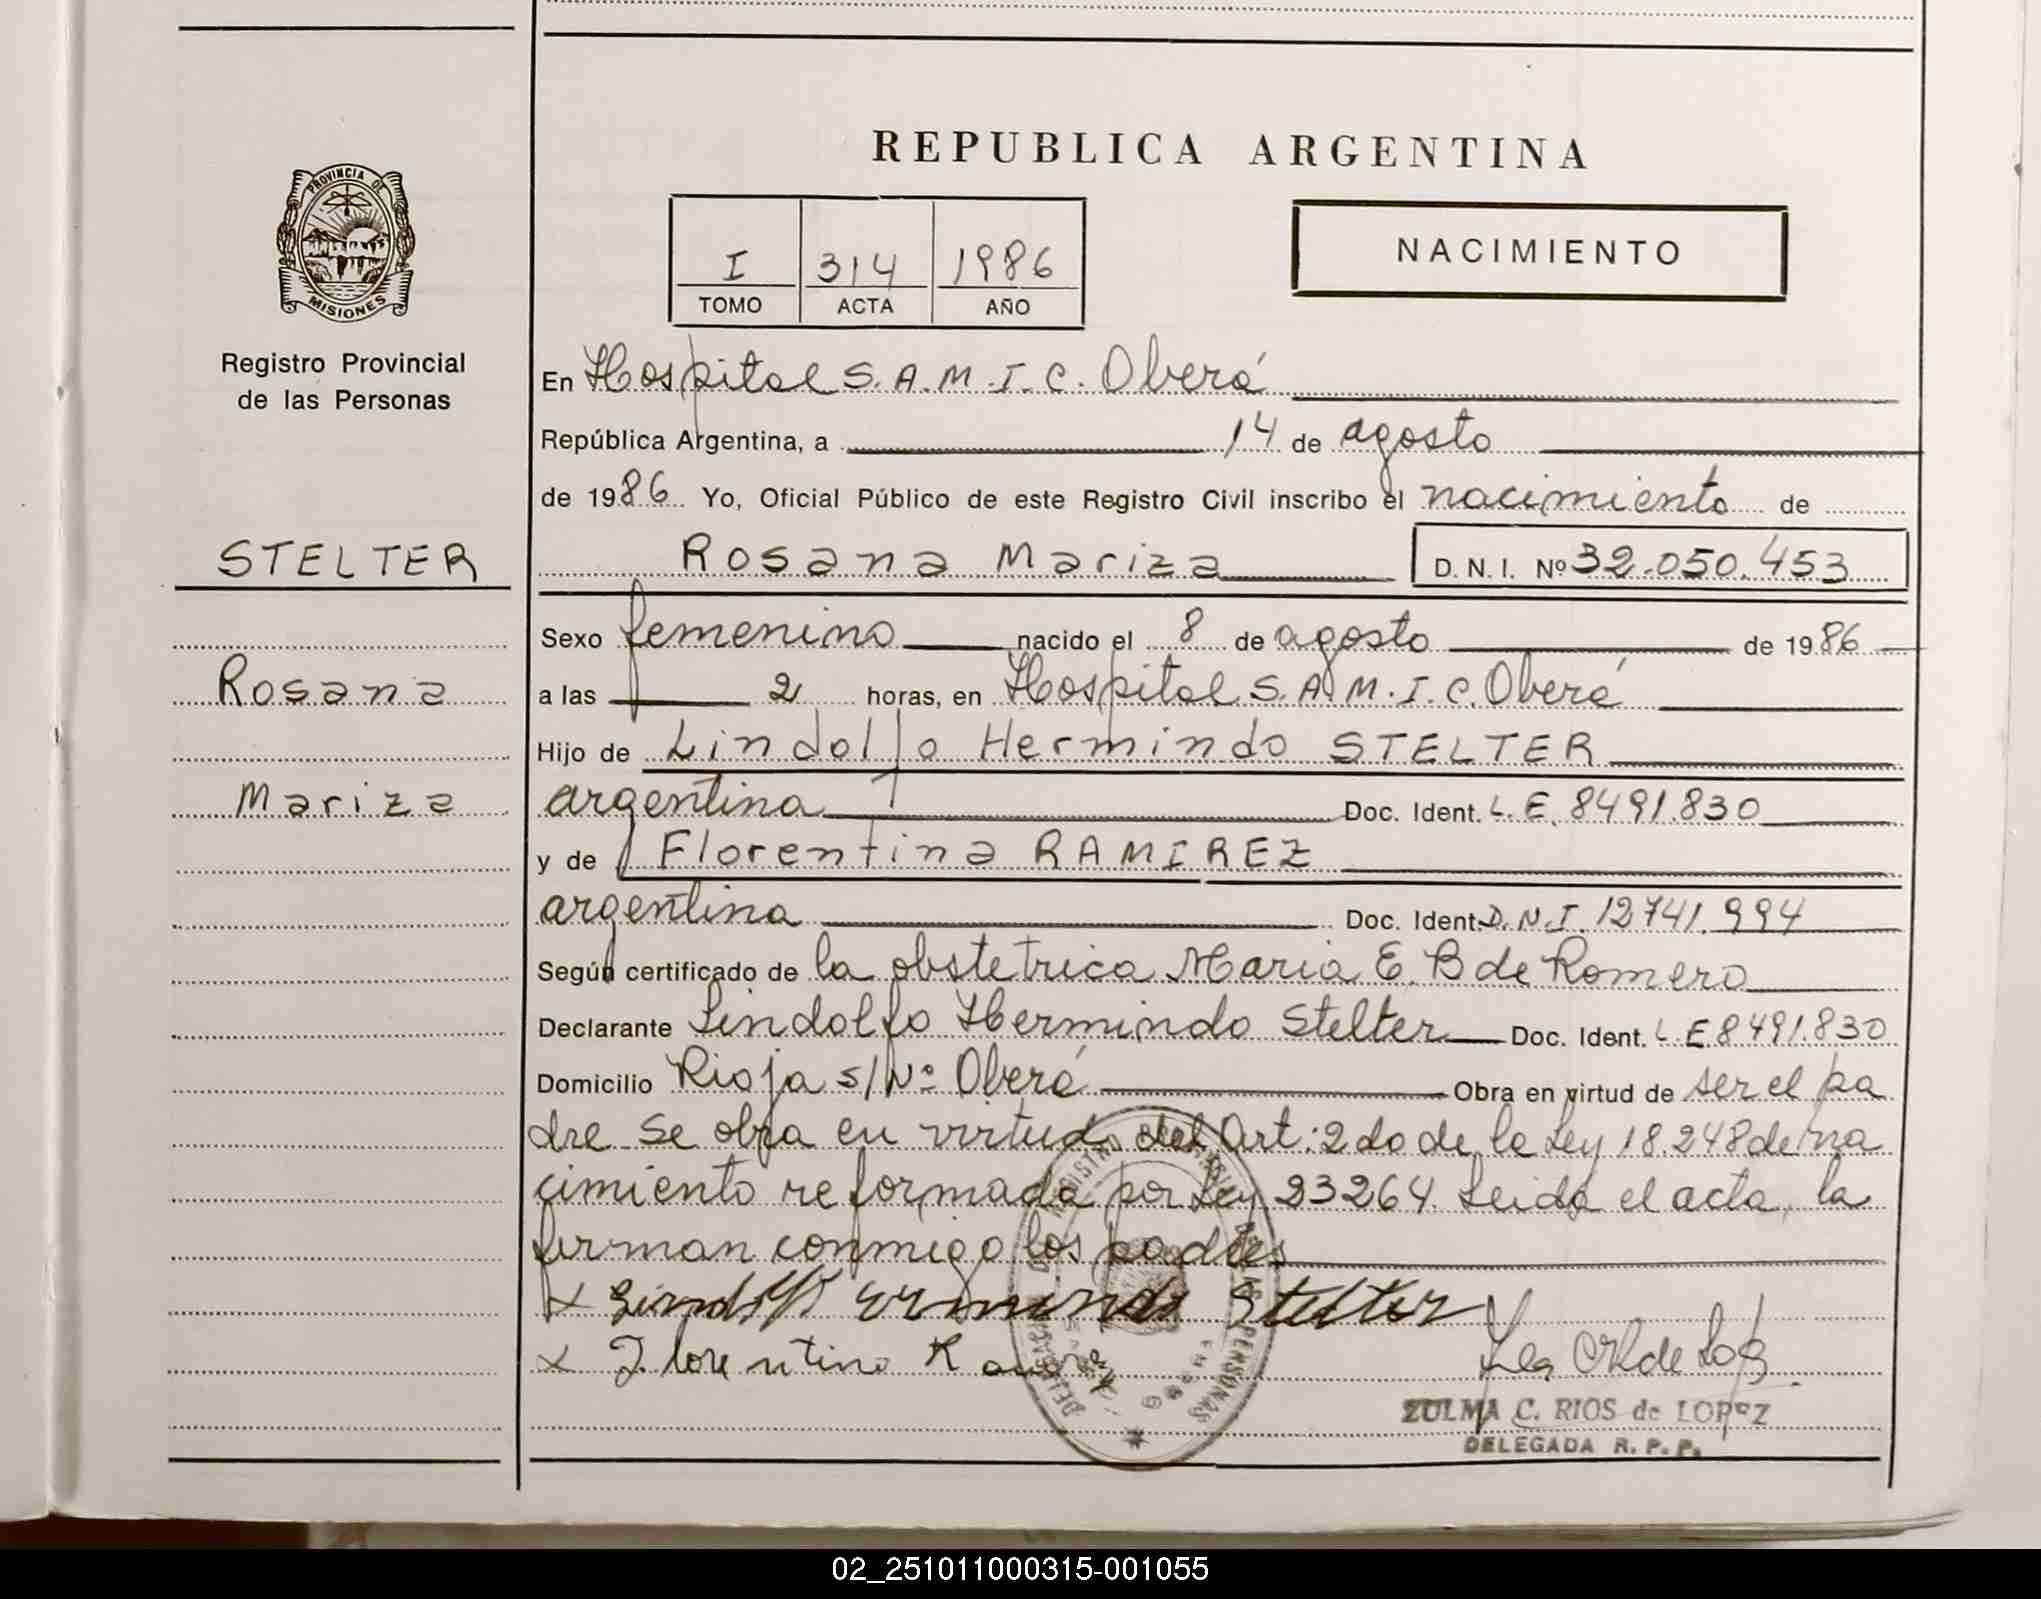 REPUBLICA ARGENTINA
PROVINCIA DE
MISIONES
Registro Provincial
de las Personas
I 314 1986
TOMO ACTA AÑO
NACIMIENTO
En Hospital S.A.M.I.C. Oberá
República Argentina, a 14 de agosto
de 1986 Yo, Oficial Público de este Registro Civil inscribo el nacimiento de
STELTER
Rosana Mariza D.N.I. Nº 32.050.453
Sexo femenino nacido el 8 de agosto de 1986
Rosana
a las 2 horas, en Hospital S.A.M.I.C. Oberá
Hijo de Lindolfo Hermindo STELTER
Mariza
argentina Doc. Ident. L.E. 8491.830
y de Florentina RAMIREZ
argentina Doc. Ident. D.N.I. 12741.994
Según certificado de la obstetrica Maria E. B de Romero
Declarante Lindolfo Hermindo Stelter Doc. Ident. L E 8491.830
Domicilio Rioja s/Nº Oberá Obra en virtud de ser el pa
dre se obra en virtud del Art: 2do de la Ley 18.248 de na
cimiento reformada por Ley 23264. Leida el acta, la
firman conmigo los padres
x Lindolfo ermindo Stelter
x Florentina
ZULMA C. RIOS de LOPEZ
DELEGADA R. P. P.
02_251011000315-001055